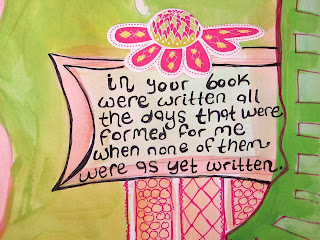 in your book
were written all
the days that were
formed for me
when none of them
were as yet written.